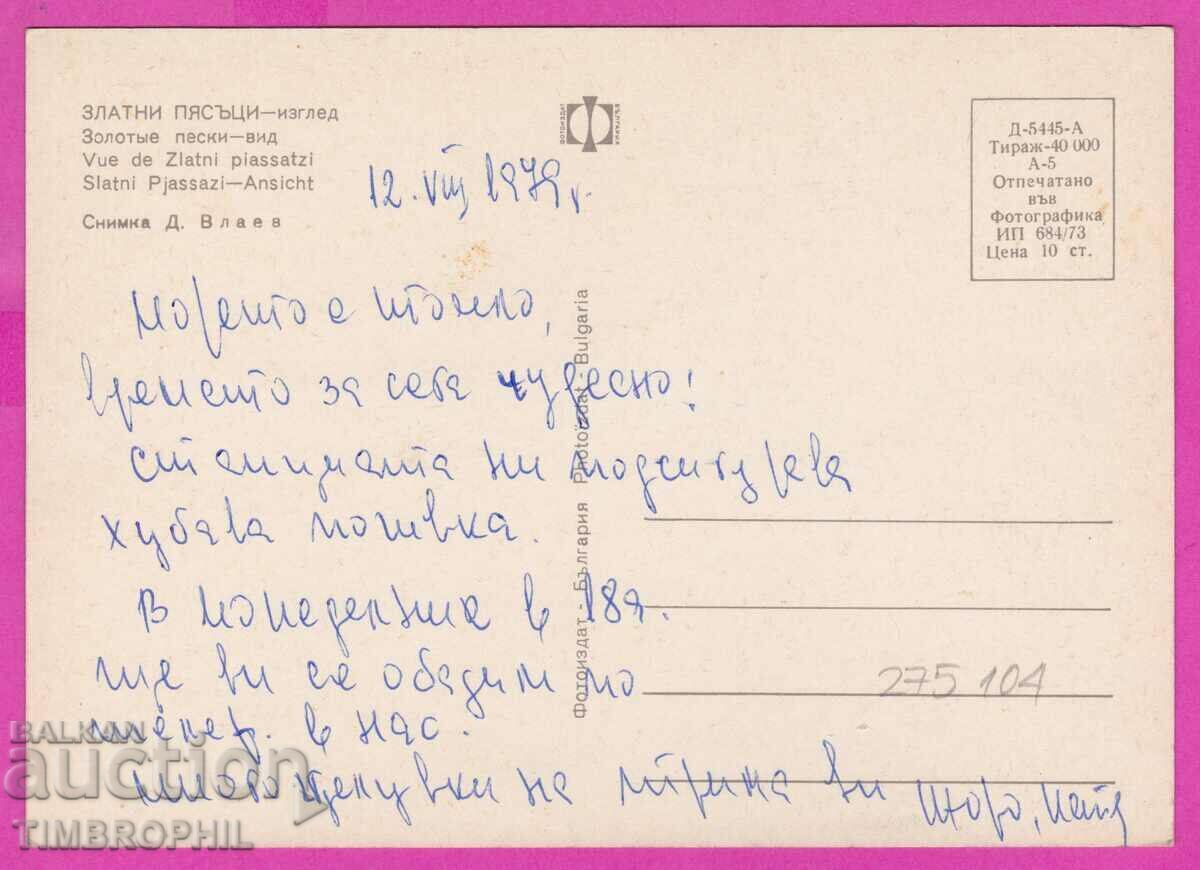 ЗЛАТНИ ПЯСЪЦИ—изглед
Золотые пески—вид
Vue de Zlatni piassatzi
Slatni Pjassazi—Ansicht
Снимка Д. Влаев
12. VIII 1979 г.
ФОТОИЗДАТ
БЪЛГАРИЯ
Д-5445-А
Тираж-40 000
А-5
Отпечатано
във
Фотографика
ИП 684/73
Цена 10 ст.
Морето е топло,
времето за сега чудесно!
Станимата ни подсигурява
хубава почивка.
В понеделник в 18ч.
ще ви се обадим по
телеф. в нас.
много целувки на трима ви
Катя
Фотоиздат - България Photoizdat - Bulgaria
275 104
BALKAN
auction
TIMBROPHIL